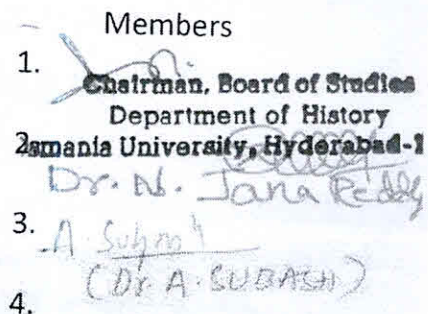 Members
1.
Chairman, Board of Studies
Department of History
2.
Osmania University, Hyderabad-1
Dr. N. Jana Reddy
3.
A. Subash
(Dr A. SUBASH)
4.